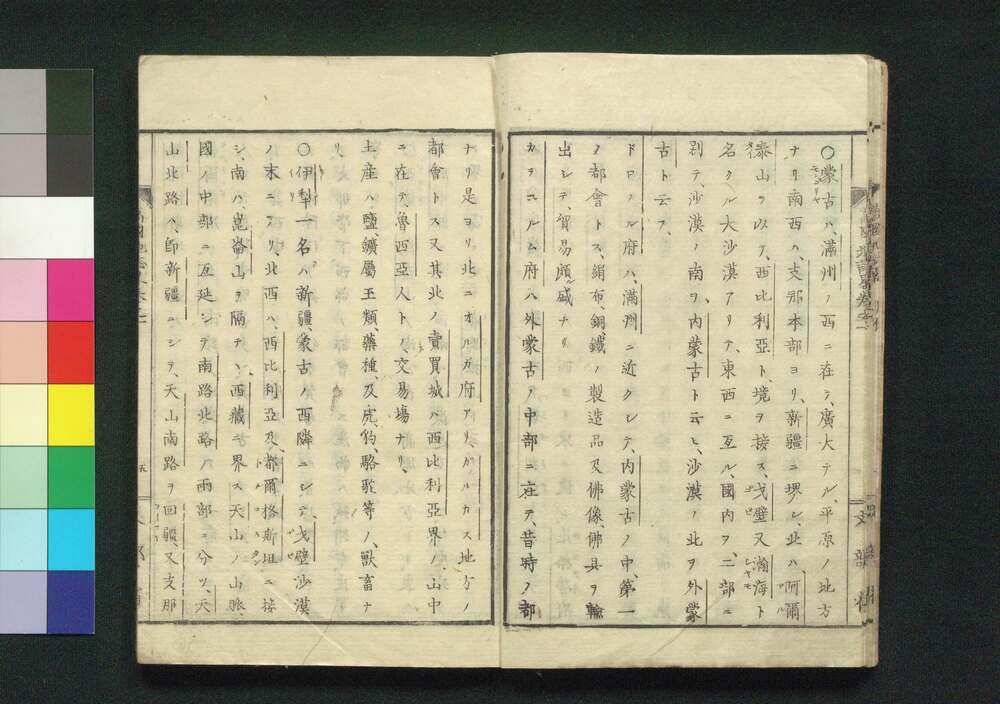 ○蒙古ハ、滿州ノ西ニ在テ、廣大テル、平原ノ地方
ナリ南西ハ、支那本部ヨリ、新疆ニ堺シ、北ハ、阿爾
泰山ヲ以テ、西比利亞ト、境ヲ接ス、戈壁又瀚海ト
名クル大沙漠アリテ、東西ニ亙ル、國内ヲ、二部ニ
割テ、沙漠ノ南ヲ、内蒙古ト云ヒ、沙漠ノ北ヲ外蒙
古ト云フ、
ドロノル府ハ、滿州ニ近クシテ、内蒙古ノ中、第一
ノ都會トス、絹布銅、鐵ノ製造品及佛像、佛具ヲ輸
出シテ、貿易頗ル盛ナリ
カヲニルム府ハ外蒙古ノ中部ニ在テ、昔時ノ都
ナリ是ヨリ北ニオルガ府アリ、ガルカス地方ノ
都會トス又其北ノ賣買城ハ西比利亞界ノ山中
ニ在テ魯西亞人トノ、交易場ナリ、
土産ハ鹽、鑛屬玉類、藥種、及虎、豹、駱駝等ノ、獸畜ナ
リ、
○伊犁一名ハ新疆、蒙古ノ西隣ニシテ、戈壁沙漠
ノ末ニアリ、北西ハ、西比利亞及、都爾格斯坦ニ接
シ、南ハ、崑崙山ヲ隔テヽ、西藏ニ界ス天山ノ山脈、
國ノ中部ニ亙延シテ南路北路ノ兩部ニ分ツ、天
山北路ハ、即新疆ニシテ、天山南路ヲ回疆、又支那
五
文部省